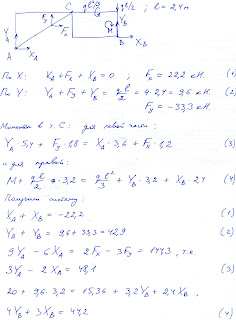 C qb/2 qb/2 ; b = 2,4м
F_y Q M Y_B
Y_A F_x
A X_A B X_B
По X: X_A + F_x + X_B = 0 ; F_x = 22,2 кН. (1)
По Y: Y_A + F_y + Y_B = qb/2 = 4·2,4 = 9,6 кН. (2)
F_y = -33,3 кН.
Моменты в т. C: для левой части:
Y_A · 5,4 + F_y · 1,8 = X_A · 3,6 + F_x · 1,2 (3)
и для правой:
M + qb/2 · 3,2 = qb²/3 + Y_B · 3,2 + X_B · 2,4 (4)
Получим систему:
X_A + X_B = -22,2. (1)
Y_A + Y_B = 9,6 + 33,3 = 42,9 (2)
9Y_A - 6X_A = 2F_x - 3F_y = 144,3, т.е.
3Y_A - 2X_A = 48,1 (3)
20 + 9,6·3,2 = 15,36 + 3,2Y_B + 2,4X_B,
4Y_B + 3X_B = 44,2 (4)